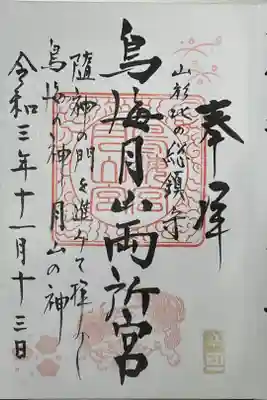 奉拝
山形地の総鎮守
鳥海月山両所宮
随神の門を進みて拝みし
鳥海の神 月山の神
令和三年十一月十三日